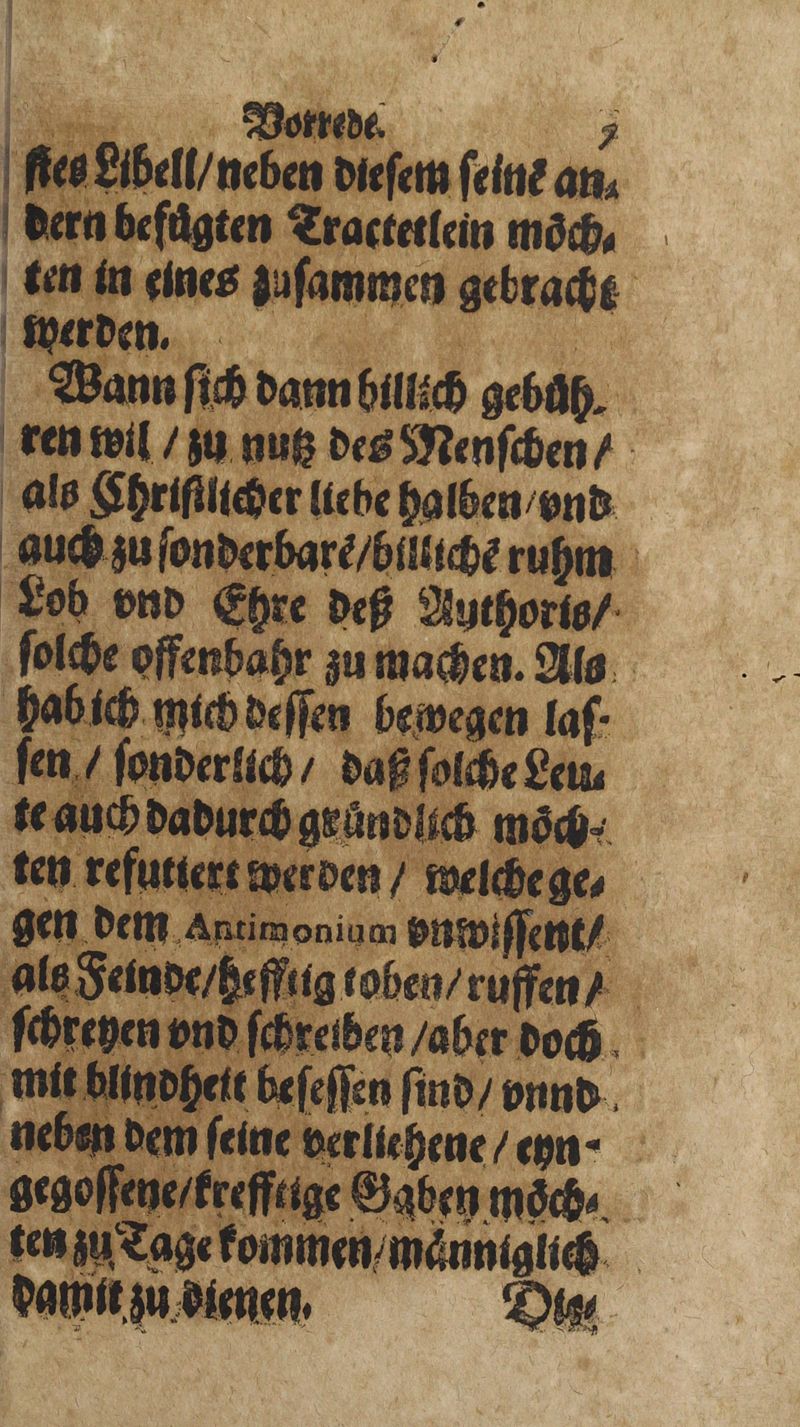 Vorrede. 7
ſtes Libell/ neben dieſem ſeinẽ an⸗
dern befuͤgten Tractetlein moͤch⸗
ten in eines zuſammen gebracht
werden.
Wann ſich dann billich gebuͤh⸗
ren wil / zu nutz des Menſchen /
als Chriſtlicher liebe halben / vnd
auch zu ſonderbarẽ / billichẽ ruhm
Lob vnd Ehre deß Authoris /
ſolche offenbahr zu machen. Als
hab ich mich deſſen bewegen laſ⸗
ſen / ſonderlich / daß ſolche Leu⸗
te auch dadurch gruͤndlich moͤch⸗
ten refutiert werden / welche ge⸗
gen dem Antimonium vnwiſſent /
als Feinde / hefftig toben / ruffen /
ſchreyen vnd ſchreiben / aber doch
mit blindheit beſeſſen ſind / vnnd
neben dem ſeine verliehene / eyn⸗
gegoſſene / krefftige Gaben moͤch⸗
ten zu Tage kommen / maͤnniglich
damit zu dienen. Die⸗